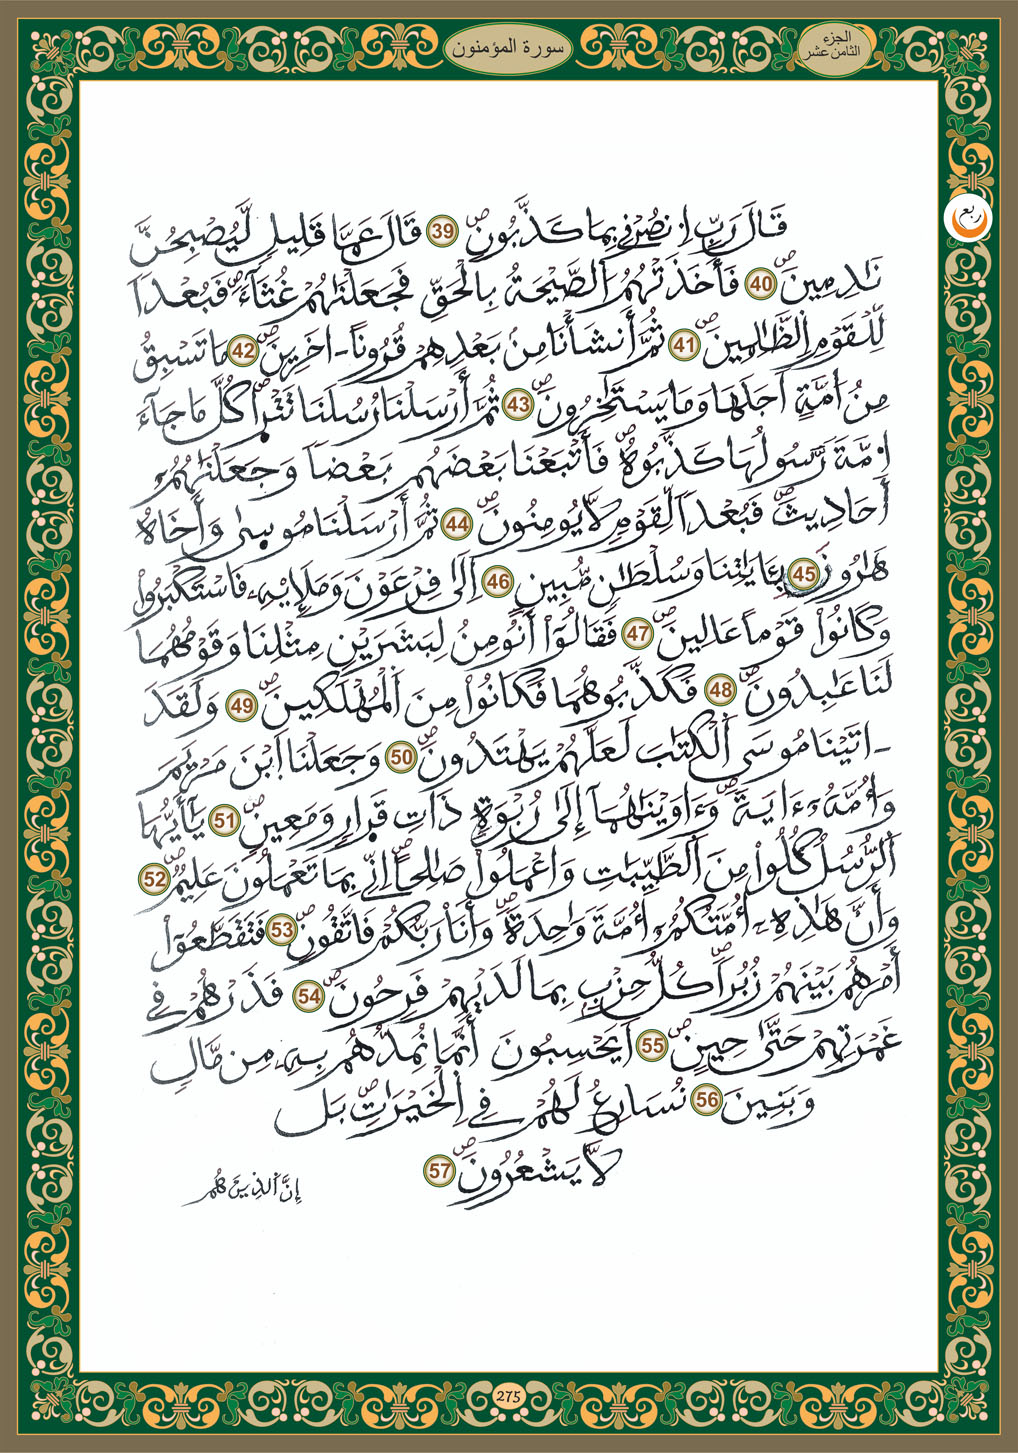 سورة المؤمنون
الجزء
الثامن عشر
ربع
قَالَ رَبِّ اِنصُرْنِي بِمَا كَذَّبُونِ ص 39 قَالَ عَمَّا قَلِيلٍ لَّيُصْبِحُنَّ
نَٰدِمِينَ ص 40 فَأَخَذَتْهُمُ اُلصَّيْحَةُ بِالْحَقِّ فَجَعَلْنَٰهُمْ غُثَآءً ص فَبُعْداً
لِّلْقَوْمِ اِلظَّٰلِمِينَ ص 41 ثُمَّ أَنشَأْنَا مِنۢ بَعْدِهِمْ قُرُوناً ـ اخَرِينَ ص 42 مَا تَسْبِقُ
مِنُ امَّةٍ اَجَلَهَا وَمَا يَسْتَٰخِرُونَ ص 43 ثُمَّ أَرْسَلْنَا رُسُلَنَا تَتْرَا ص كُلَّ مَا جَآءَ
امَّةَ رَّسُولُهَا كَذَّبُوهُ ص فَأَتْبَعْنَا بَعْضَهُم بَعْضاً وَجَعَلْنَٰهُمُۥٓ
أَحَادِيثَ ص فَبُعْداً لِّقَوْمٍ لَّا يُومِنُونَ ص 44 ثُمَّ أَرْسَلْنَا مُوسَىٰ وَأَخَاهُ
هَٰرُونَ 45 بِـَٔايَٰتِنَا وَسُلْطَٰنٍ مُّبِينٍ 46 اِلَىٰ فِرْعَوْنَ وَمَلَإِيْهِۦ فَاسْتَكْبَرُواْ
وَكَانُواْ قَوْماً عَالِينَ ص 47 فَقَالُوٓاْ أَنُومِنُ لِبَشَرَيْنِ مِثْلِنَا وَقَوْمُهُمَا
لَنَا عَٰبِدُونَ ص 48 فَكَذَّبُوهُمَا فَكَانُواْ مِنَ اَلْمُهْلَكِينَ ص 49 وَلَقَدَ
ـ اتَيْنَا مُوسَى اَلْكِتَٰبَ لَعَلَّهُمْ يَهْتَدُونَ ص 50 وَجَعَلْنَا اَبْنَ مَرْيَمَ
وَأُمَّهُۥٓ ءَايَةً ص وَءَاوَيْنَٰهُمَآ إِلَىٰ رُبْوَةٍ ذَاتِ قَرَارٍ وَمَعِينٍ ص 51 يَٰٓأَيُّهَا
اَلرُّسُلُ كُلُواْ مِنَ اَلطَّيِّبَٰتِ وَاعْمَلُواْ صَٰلِحاً ص اِنِّي بِمَا تَعْمَلُونَ عَلِيمٌ ص 52
وَأَنَّ هَٰذِهِۦٓ أُمَّتُكُمُۥٓ أُمَّةً وَٰحِدَةً ص وَأَنَا رَبُّكُمْ فَاتَّقُونِ ص 53 فَتَقَطَّعُوٓاْ
أَمْرَهُم بَيْنَهُمْ زُبُراً ص كُلُّ حِزْبٍۢ بِمَا لَدَيْهِمْ فَرِحُونَ ص 54 فَذَرْهُمْ فِي
غَمْرَتِهِمْ حَتَّىٰ حِينٍ ص 55 اَيَحْسِبُونَ أَنَّمَا نُمِدُّهُم بِهِۦ مِن مَّالٍ
وَبَنِينَ ص 56 نُسَارِعُ لَهُمْ فِي اِلْخَيْرَٰتِ ص بَل
لَّا يَشْعُرُونَ ص 57
إِنَّ اَلذِينَ هُم
275